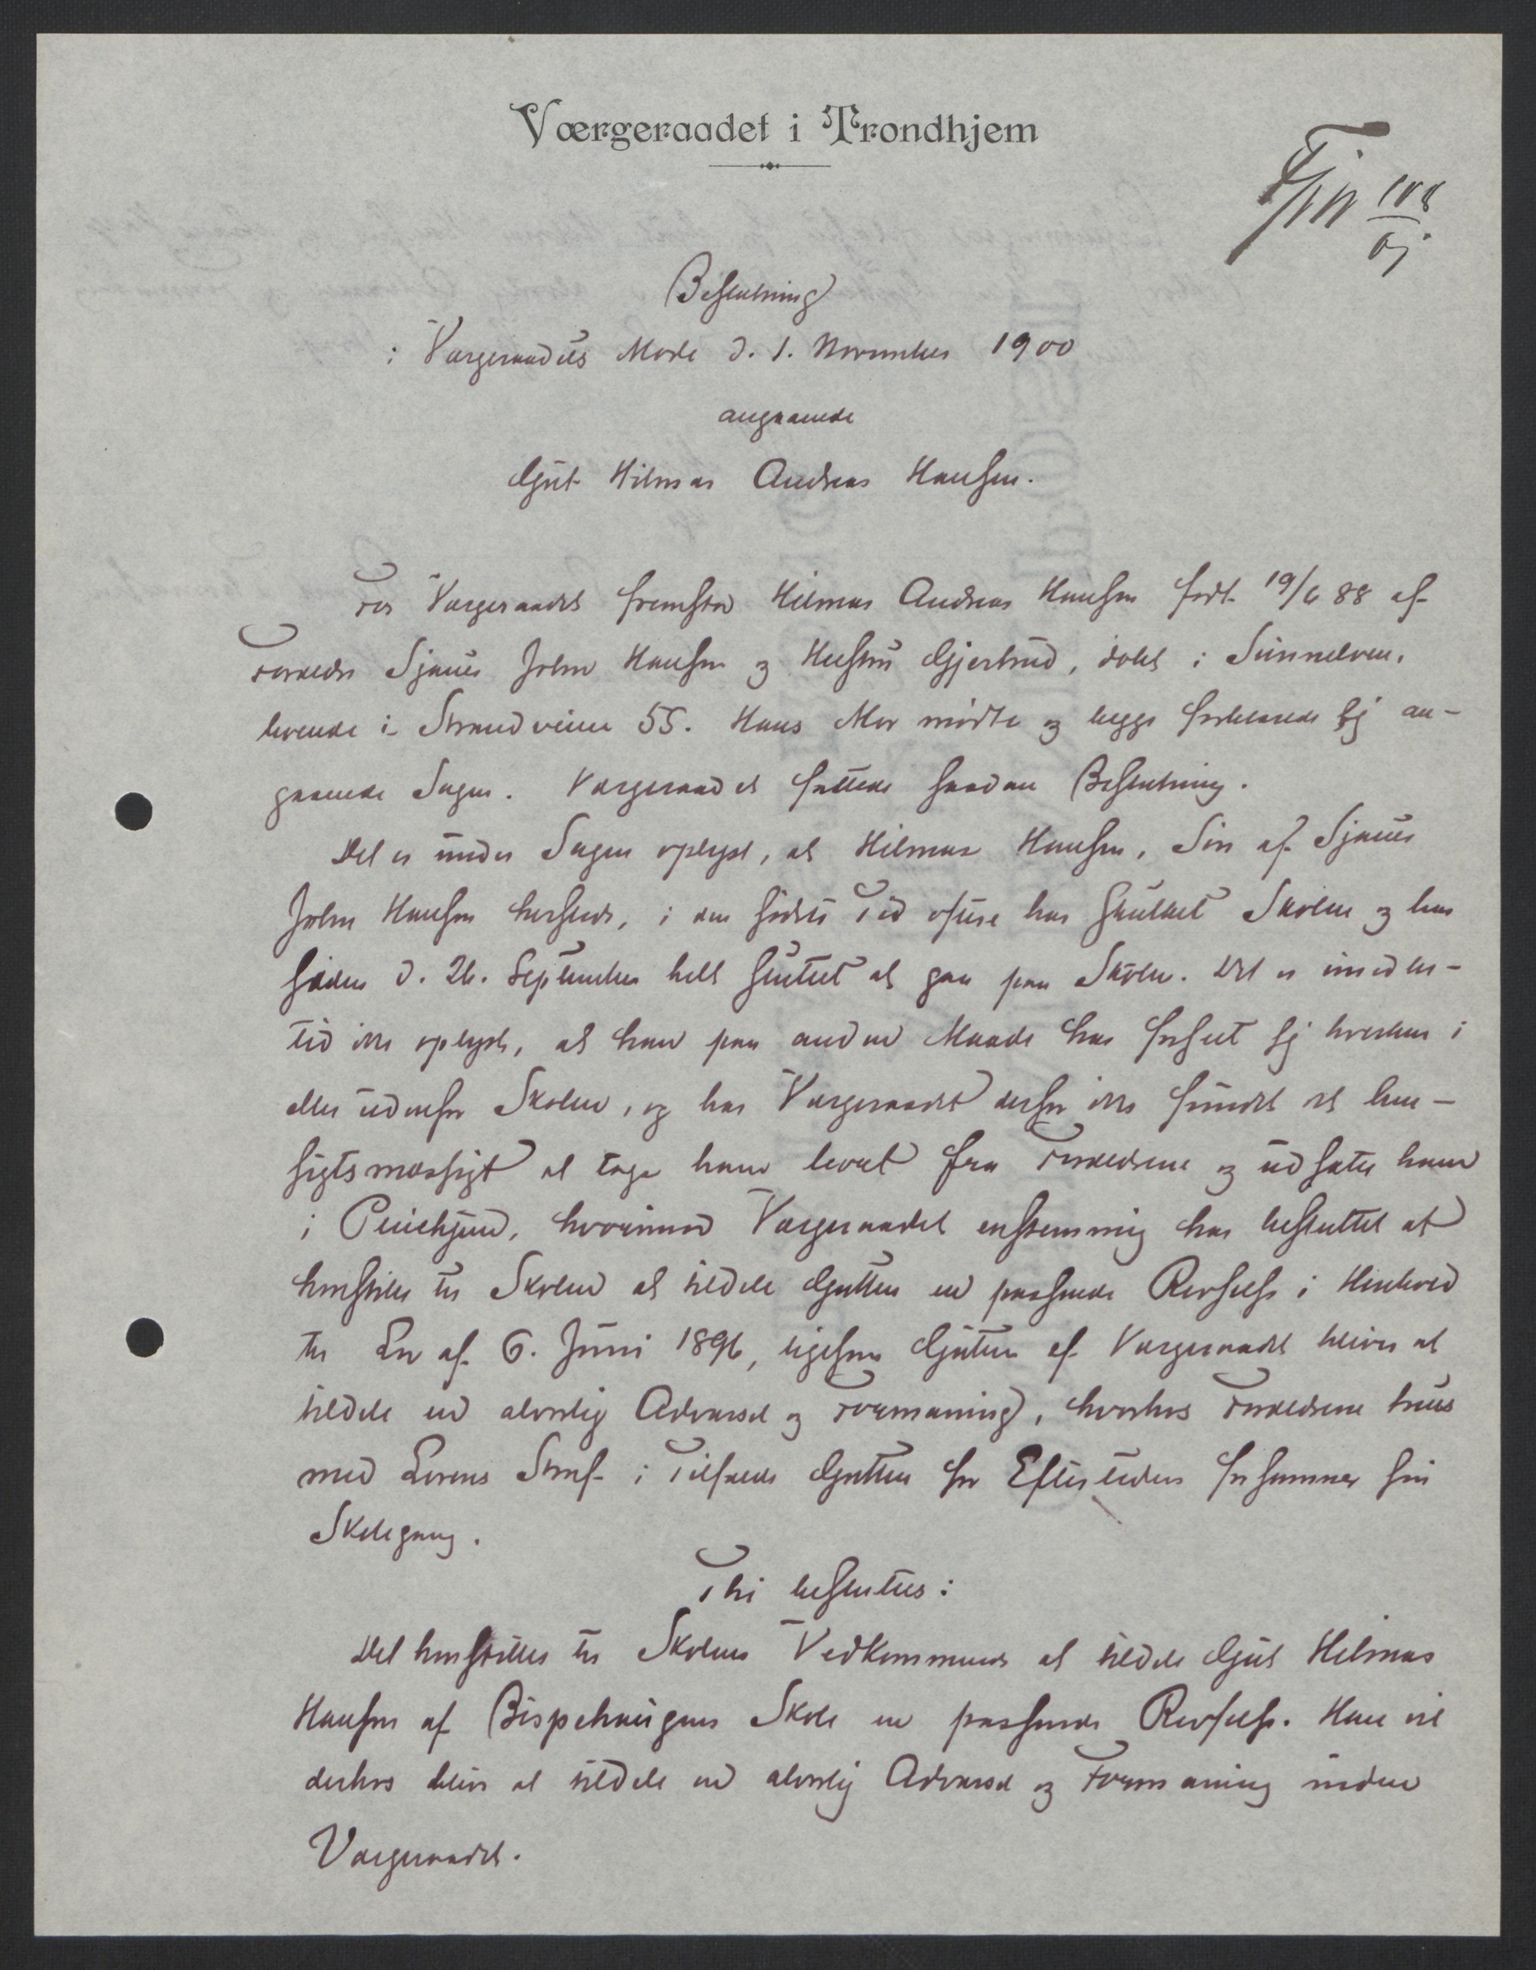 Værgeraadet i Trondhjem
108
01
Beslutning
i Værgeraadets Møde d. 1. November 1900
angaaende
Gut Hilmar Andreas Hansen.
For Værgeraadet fremstod Hilmar Andreas Hansen født 19/6 88 af
Forældre Sjauer Johan Hansen og Hustru Gjertrud, døbt i Sunnelven,
boende i Strandveien 55. Hans Mor mødte og begge forklarede sig an-
gaaende Sagen. Værgeraadet fattede saadan Beslutning.
Det er under Sagen oplyst, at Hilmar Hansen, Søn af Sjauer
Johan Hansen hersteds, i den sidste Tid oftere har skulket Skolen og har
siden d. 26. September helt sluttet at gaa paa Skolen. Det er imidler-
tid ikke oplyst, at han paa anden Maade har forseet sig hverken i
eller udenfor Skolen, og har Værgeraadet derfor ikke fundet det hen-
sigtsmæssigt at tage ham bort fra Forældrene og udsætte ham
i Pleiehjem, hvorimod Værgeraadet enstemmig har besluttet at
henstille til Skolen at tildele Gutten en passende Revselse i Henhold
til Lov af 6. Juni 1896, ligesom Gutten af Værgeraadet bliver at
tildele en alvorlig Advarsel og Formaning, hvorhos Forældrene trues
med Lovens Straf i Tilfælde Gutten for Eftertiden forsømmer sin
Skolegang.
Thi besluttes:
Det henstilles til Skolens Vedkommende at tildele Gut Hilmar
Hansen af Bispehaugens Skole en passende Revselse. Han vil
derhos blive at tildele en alvorlig Advarsel og Formaning inden
Værgeraadet.